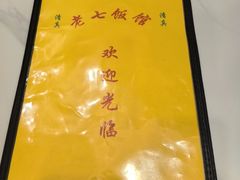 清真
七饭
清真
欢迎光临